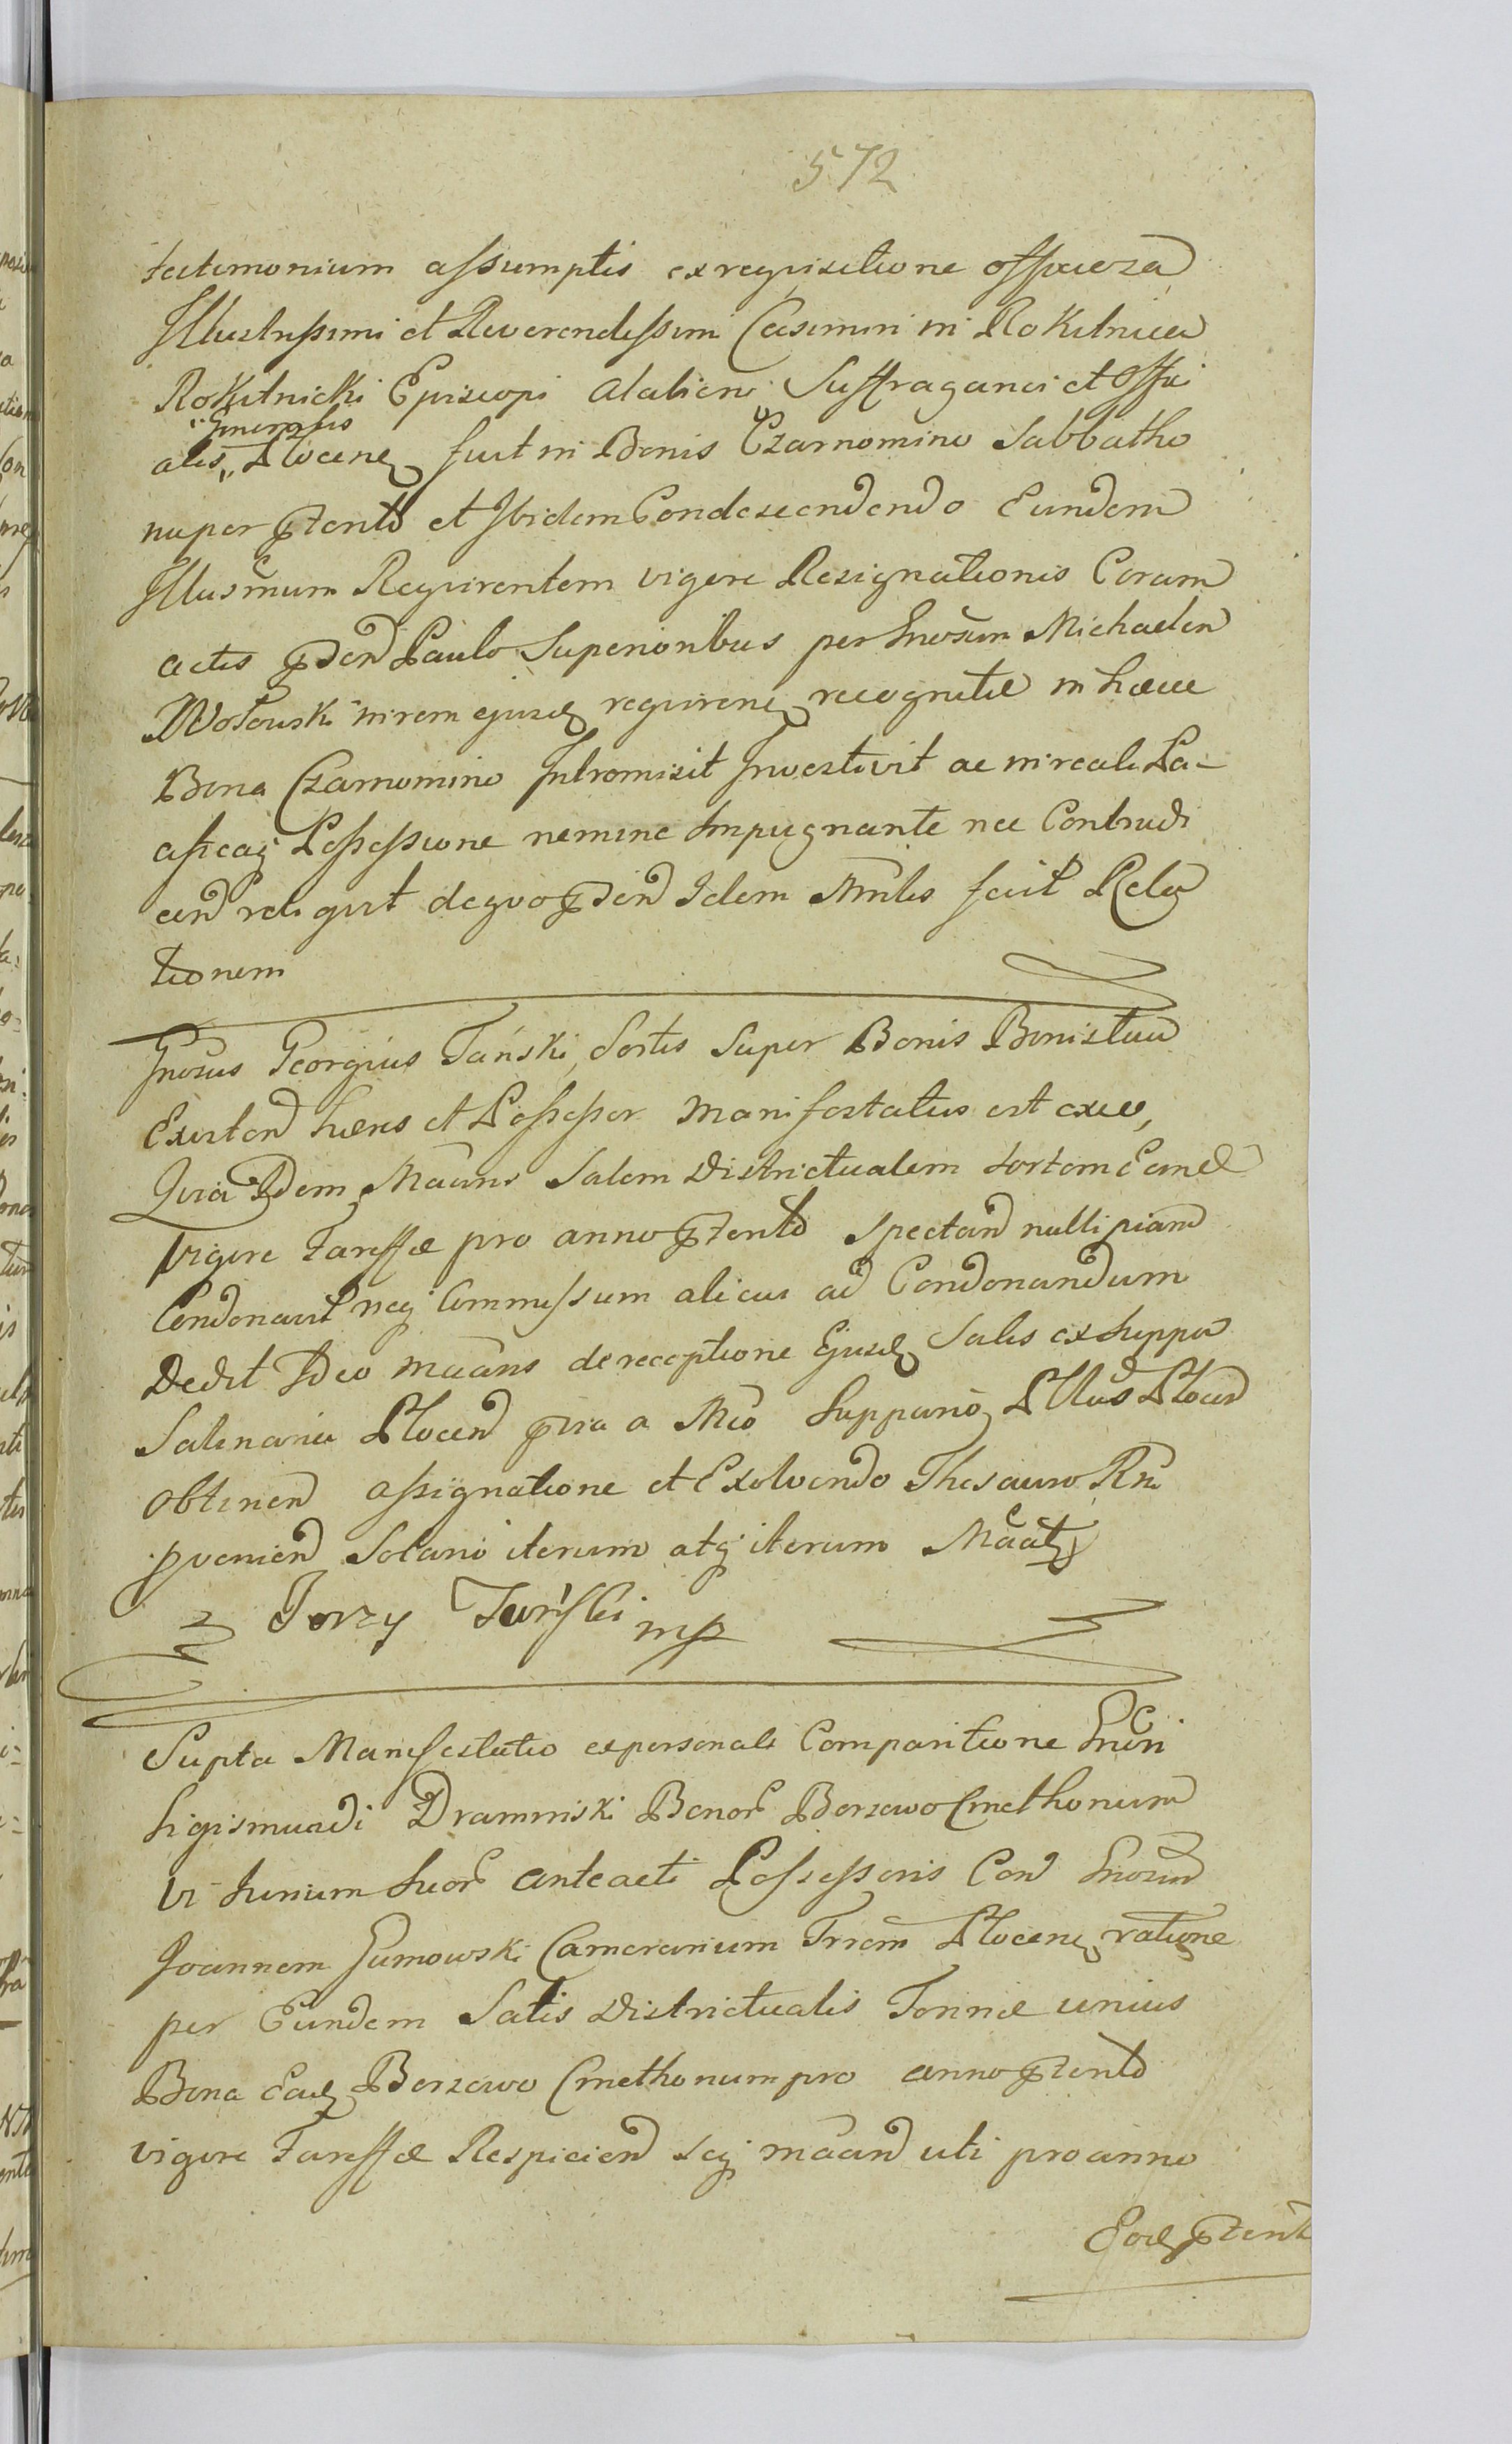 572
testimonium assumptis ex requisitione officiosa
Illustrissimi et Reverendissimi Casimiri in Rokitnica
Rokitnicki Episcopi Alalien Suffraganei et Offici
Generalis
alis Plocen fuit in Bonis Czarnomino Sabbatho
nuper pzterito et Ibidem Condescendendo Eundem
Illusmum Requirentem vigore Resignationis Coram
actis pzden Paulo Superioribus per Gnosum Michaelem
Wołowski in rem ejusd requiren recognitæ in hæcce
Bona Czarnomino Intromisit Investivit ac in reali Pa-
cificaq Possessione nemine Impugnante nec Contradi
cen reliquit de quo pzden Idem Mnlis fecit Rela
tionem
Gnosus Georgius Tański, Sortis super Bonis Bonisław
Existen hæres et Possessor manifestatus est ex eo,
Quia Idem Maans Salem Districtualem sortem Eand
vigore Tariffæ pro anno pzterito spectan nulli piam
Condonavit neq Commissum alicui ad Condonandum
Dedit Ideo maans de receptione Ejusd Salis ex Suppa
Salinaria Plocen pvia a Mco Suppario Pllûs Plocen
obtinen assignatione et Exolvendo Thesauro Rni
pvenien Solario iterum atq iterum Maatr
Jerzy Tański mp
Supta Manifestatio ex personali Comparitione Gnri
Sigismundi Dramiński Bonor Borzewo Cmethonum
Vi Jurium suor anteacti Possessoris Con Gnosum
Joannem Gumowski Camerarium Trrem Plocen ratione
per Eundem Salis Districtualis Tonnæ unius
Bona Ead Borzewo Cmethonum pro anno pzterito
vigore Tariffæ Respicien seq maand uti pro anno
Eod pzterit